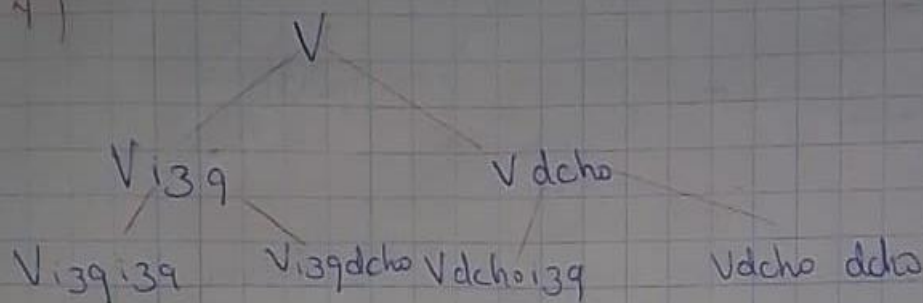 4)
V
Vizq Vdcho
Vizqizq Vizqdcho Vdchoizq Vdcho dcho